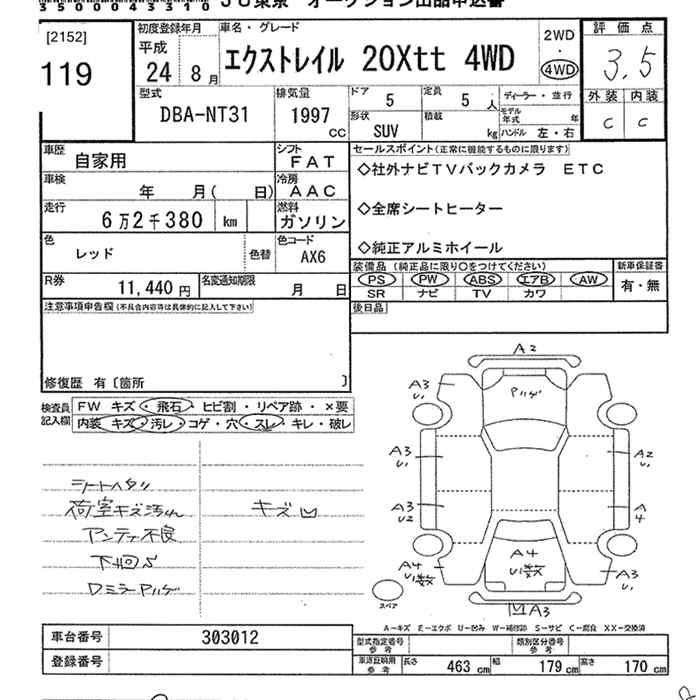 350004331 0 JU東京 オークション出品申込書
[2152]
119
初度登録年月
平成
24年 8月
車名・グレード
エクストレイル 20Xtt 4WD
2WD
・
4WD
評価点
3.5
外装 内装
C C
型式
DBA-NT31
排気量
1997
CC
ドア
5
定員
5 人
ディーラー・並行
モデル年式 年
形状
SUV
積載
kg
ハンドル 左・右
車歴
自家用
シフト
FAT
車検
年 月( 日)
冷房
AAC
走行
6万2千380 km
燃料
ガソリン
色
レッド
色替
色コード
AX6
R券
11,440円
名変通知期限
月 日
セールスポイント(正常に機能するものに限ります)
◇社外ナビTVバックカメラ ETC
◇全席シートヒーター
◇純正アルミホイール
装備品(純正品に限り○をつけてください)
新車保証書
PS PW ABS エアB AW
有・無
SR ナビ TV カワ
後日品
注意事項申告欄(不具合内容等は具体的に記入して下さい)
修復歴 有〔箇所 〕
検査員
記入欄
FW キズ・飛石・ヒビ割・リペア跡・×要
内装 キズ・汚レ・コゲ・穴・スレ・キレ・破レ
シートヘタリ
荷室キズ汚れ
キズ凹
アンテナ不良
下廻S
ロミラーPハゲ
A2
A3
U1
Pハゲ
A3
U1
A3
U1
A2
U1
A3
U2
A
4
A4
U1数
A4
U1数
A3
U1
スペア
A3
A−キズ E−エクボ U−凹み W−補修跡 S−サビ C−腐食 XX−交換済
車台番号
303012
型式指定番号
参考
類別区分番号
参考
登録番号
車庫証明用
参考
長さ 463 cm 幅 179 cm 高さ 170 cm